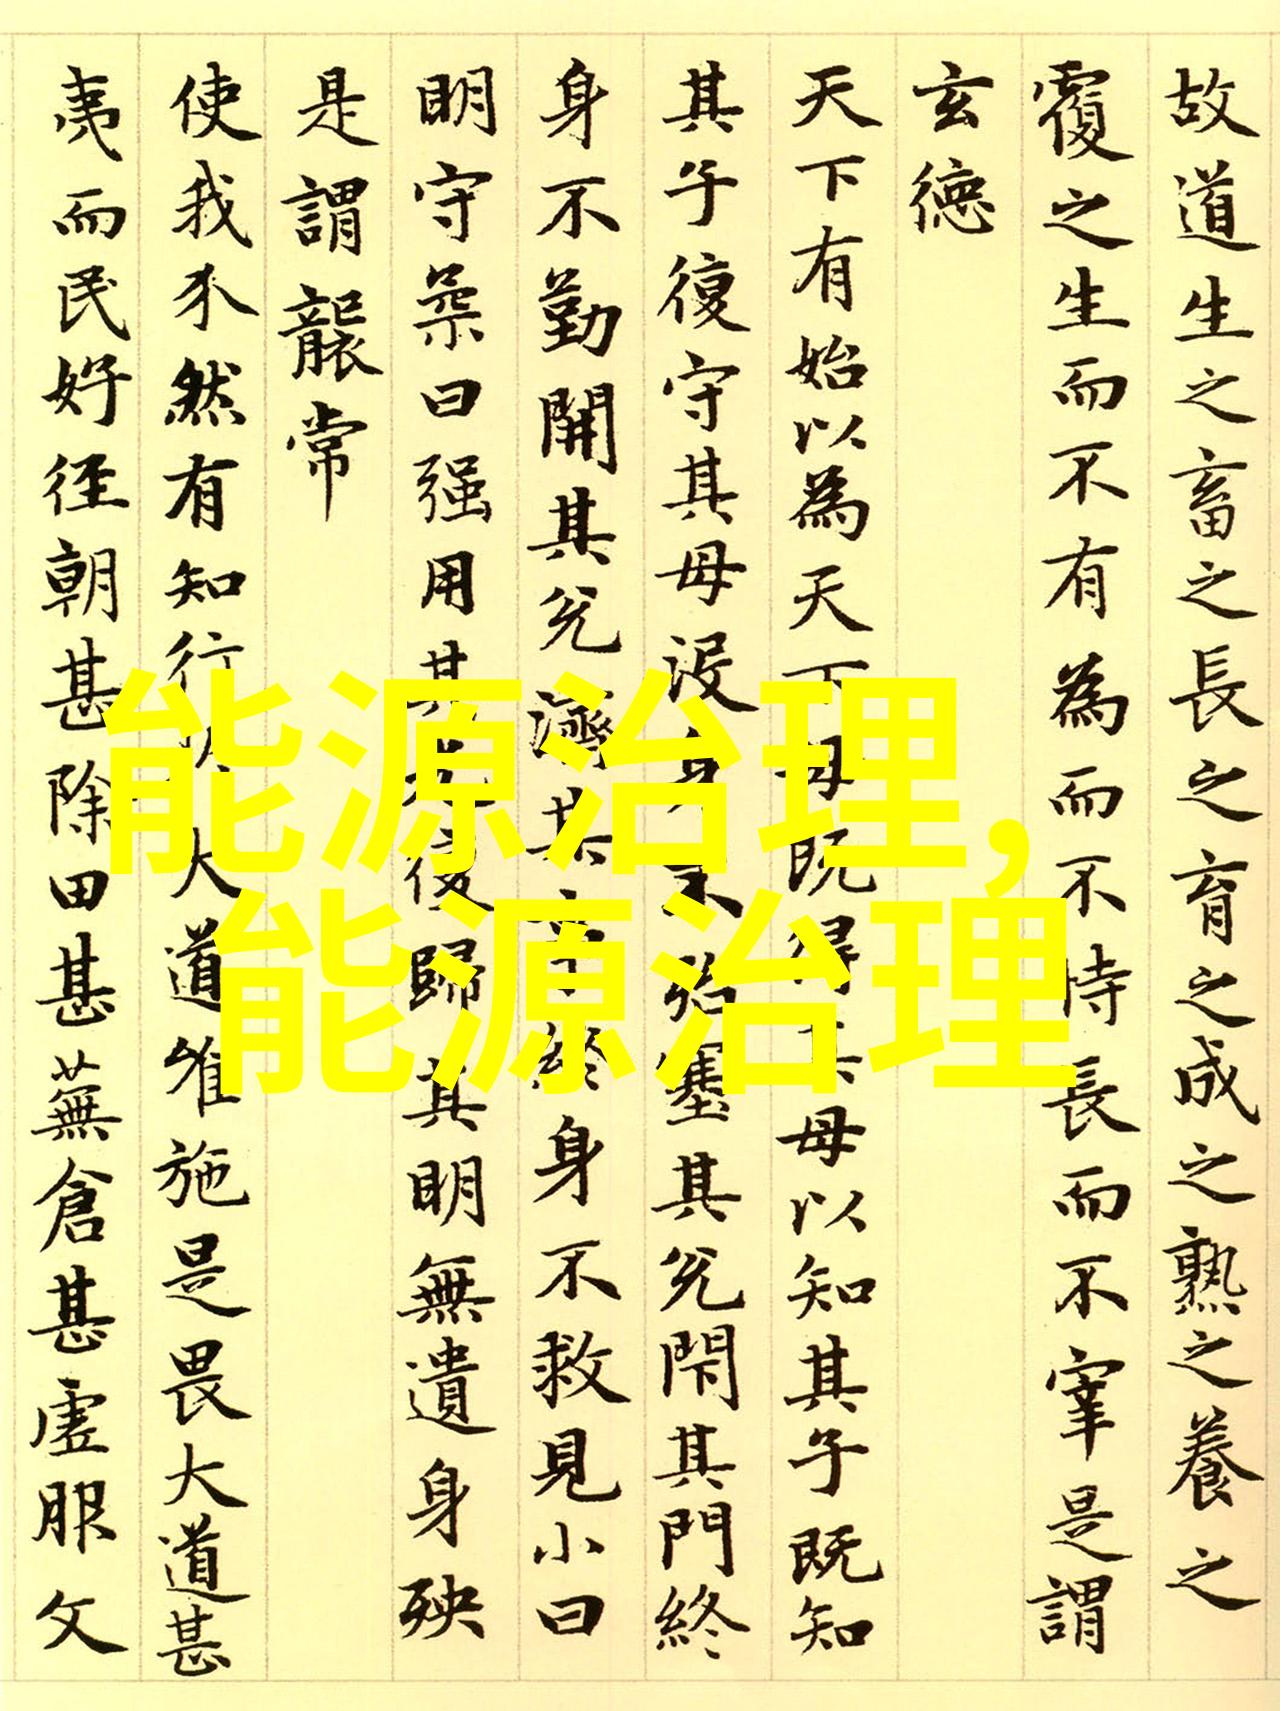 故道生之畜之長之育之成之熟之養之
覆之生而不有為而不恃長而不宰是謂
玄德
天下有始以為天下母既得其母以知其子既知
其子復守其母没身不殆塞其兊閇其門終
身不勤開其兊濟其事終身不救見小曰
明守柔曰强用其光復歸其明無遺身殃
是謂襲常
使我介然有知行於大道唯施是畏大道甚
夷而民好徑朝甚除田甚蕪倉甚虛服文
能源治理,
能源治理